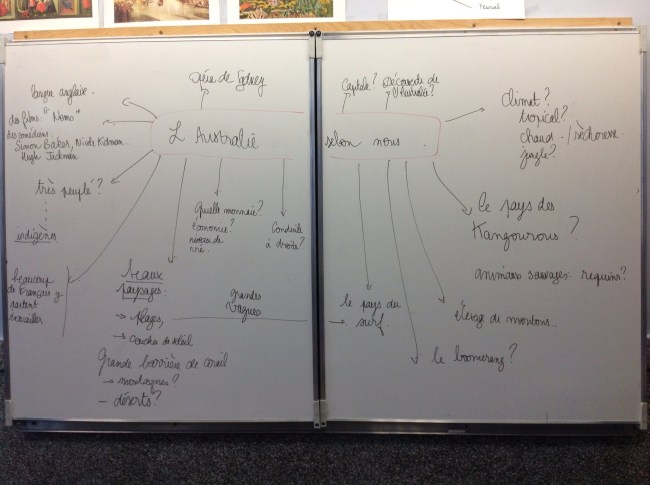 Neural
Opéra de Sydney
langue anglaise.
des films "Nemo"
des comédiens.
Simon Baker, Nicole Kidman.
Hugh Jackman
L'Australie
très peuplé ?
indigènes
beaucoup
de Français y
partent
travailler
Quelle monnaie ?
économie ?
niveau de
vie.
Conduite
à droite ?
beaux
paysages.
→ plages,
→ couchés de soleil
grandes
vagues
Grande barrière de corail
→ montagnes ?
– déserts ?
Capitale ?
Découverte de
l'Australie ?
selon nous.
Climat ?
tropical ?
chaud / sécheresse
jungle ?
le pays des
Kangourous ?
animaux sauvages : requins ?
le pays du
→ surf.
Elevage de moutons.
le boomerang ?